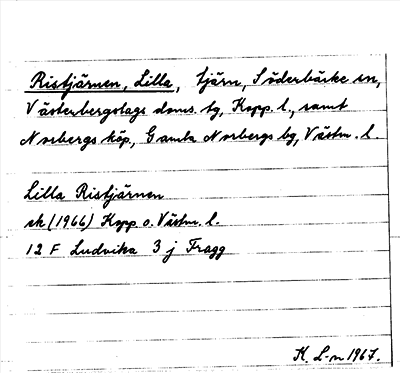 Ristjärnen, Lilla, tjärn, Söderbärke sn,
Västerbergslags doms. tg, Kopp. l., samt
Norbergs köp, Gamla Norbergs bg, Västm. l.
Lilla Ristjärnen
sk (1966) Kopp. o. Västm. l.
12 F Ludvika 3 j Fragg
K. L-n 1967.